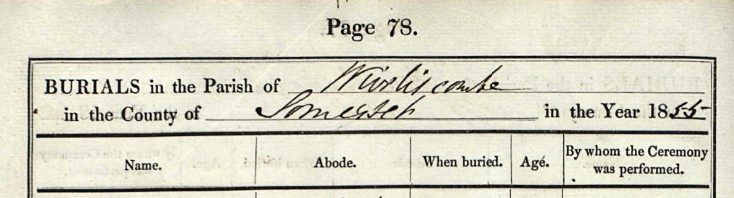 Page 78.
BURIALS in the Parish of Wiveliscombe
in the County of Somerset in the Year 1855
Name. Abode. When buried. Agé. By whom the Ceremony
was performed.